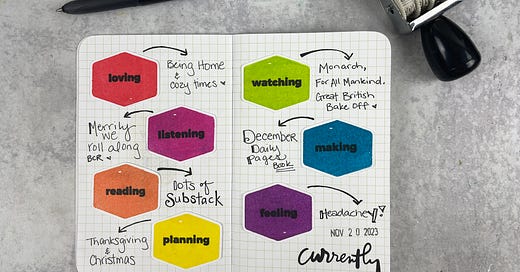 loving
Being Home
& cozy times
listening
Merrily
we
roll along
BCR
reading
Oots of
Substack
planning
Thanksgiving
& Christmas
watching
Monarch,
For All Mankind,
Great British
Bake Off
making
December
Daily
Pages
Book
feeling
Headachey!
NOV 20 2023
Currently